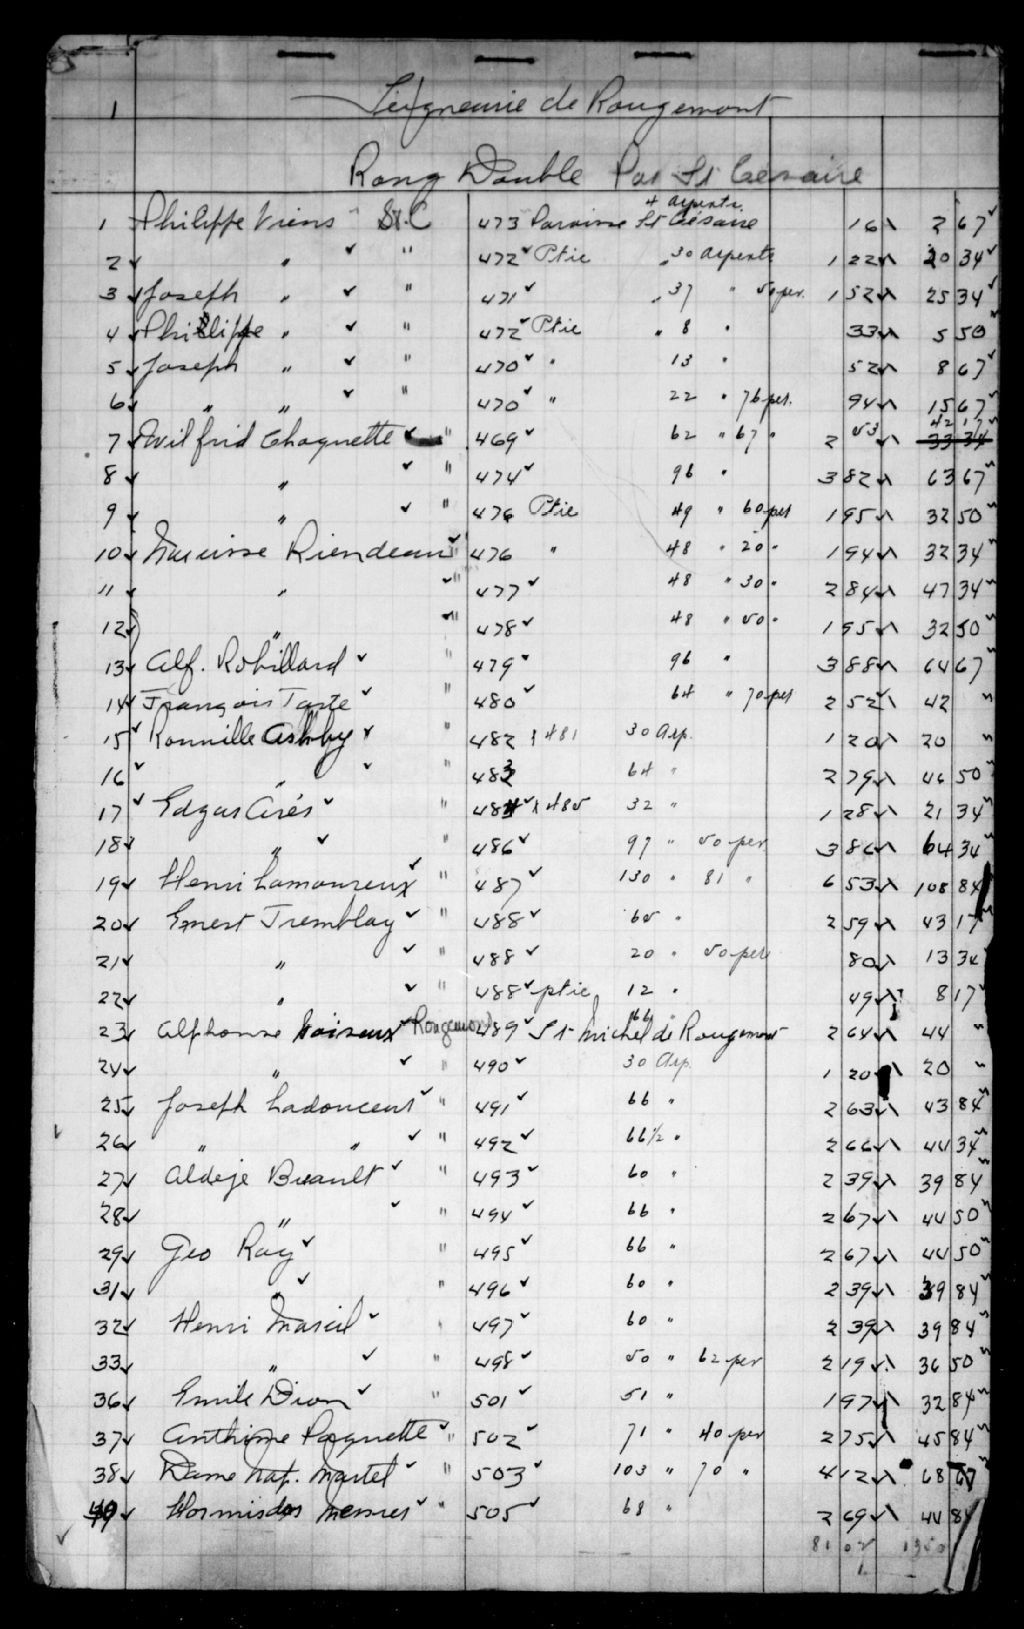 1 Seigneurie de Rougemont
Rang Double Par St Cesaire
4 Arpents
1 Philippe Viens " St. C 473 Paroisse St Césaire 16 2 67
2 " " 472 Ptie 30 Arpents 1 22 20 34
3 Joseph " " 471 37 " 50 per. 1 52 25 34
4 Philippe " " 472 Ptie " 8 " 33 5 50
5 Joseph " " 470 " 13 " 52 8 67
6 " " " 470 " 22 " 76 per. 94 15 67
42 17
7 Wilfrid Choquette " 469 62 " 67 " 2 53 33 34
8 " " 474 96 " 3 82 63 67
9 " " 476 Ptie 49 " 60 per 1 95 32 50
10 Narcisse Riendeau " 476 " 48 " 20 " 1 94 32 34
11 " " 477 48 " 30 " 2 84 47 34
12 " " 478 48 " 50 " 1 95 32 50
13 Alf. Robillard " 479 96 " 3 88 64 67
14 François Tarte " 480 64 " 70 per 2 52 42 "
15 Ashby " 482 & 481 30 Arp. 1 20 20 "
16 " " 483 64 " 2 79 46 50
17 Edgar Arés " 484 & 485 32 " 1 28 21 34
18 " " 486 97 " 50 per 3 86 64 34
19 Henri Lamoureux " 487 130 " 81 " 6 53 108 84
20 Ernest Tremblay " 488 65 " 2 59 43 17
21 " " 488 20 " 50 per 80 13 34
22 " " 488 ptie 12 " 49 8 17
66 "
23 Alphonse Loiseux Rougemont 489 St Michel de Rougemont 2 64 44 "
24 " " 490 30 Arp. 1 20 20 "
25 Joseph Ladouceur " 491 66 " 2 63 43 84
26 " " " 492 66 1/2 " 2 66 44 34
27 Aldège Breault " 493 60 " 2 39 39 84
28 " " 494 66 " 2 67 44 50
29 Geo Ray " 495 66 " 2 67 44 50
31 " " 496 60 " 2 39 39 84
32 Henri Marcil " 497 60 " 2 39 39 84
33 " " 498 50 " 62 per 2 19 36 50
36 Emile Dion " 501 51 " 1 97 32 84
37 Anthime Paquette " 502 71 " 40 per 2 75 45 84
38 Dame Nap. Martel " 503 103 " 70 " 4 12 68 67
Hormisdas " 505 68 " 2 69 44 84
81 02